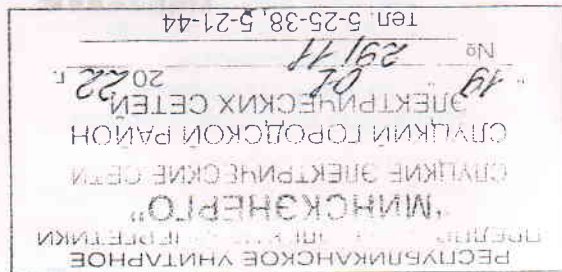 РЕСПУБЛИКАНСКОЕ УНИТАРНОЕ
"МИНСКЭНЕРГО"
СЛУЦКИЕ ЭЛЕКТРИЧЕСКИЕ СЕТИ
СЛУЦКИЙ ГОРОДСКОЙ РАЙОН
ЭЛЕКТРИЧЕСКИХ СЕТЕЙ
"19" 01 2022 г.
№ 29/11
тел. 5-25-38, 5-21-44